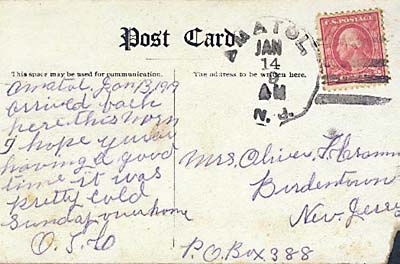 Post Card
This space may be used for communication.
The address to be written here.
AMATOL
JAN
14
AM
N. J.
U.S. POSTAGE
Amatol, Jan 13, 1919
arrived back
here this morn
I hope you are
having a good
time it was
pretty cold
Sunday
home
Mrs. Oliver
Bordentown
New Jersey
P.O. Box 388